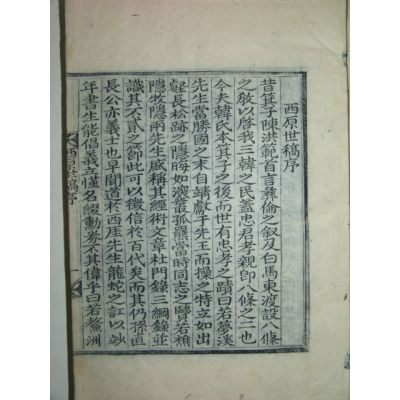 西原世稿序
昔箕子陳洪範首言彛倫之叙及白馬東渡設八條
之敎以啓我三韓之民蓋忠君孝親卽八條之二也
今夫韓氏本箕子之後而世有忠孝之蹟曰若夢溪
先生當勝國之末自靖獻于先王而操之特立如出
壑長松跡之隱晦如叢孤當時同志之賢若樵
隱牧隱兩先生咸稱其經術文章杜門錄三綱錄並
識其不貳之節此可以徵信於百代矣而其仍孫直
長公亦義士也早聞道於西厓先生龍蛇之訌以妙
年書生能倡義立慬名綴勳券不其偉乎曰若鰲洲
西原世稿序
一